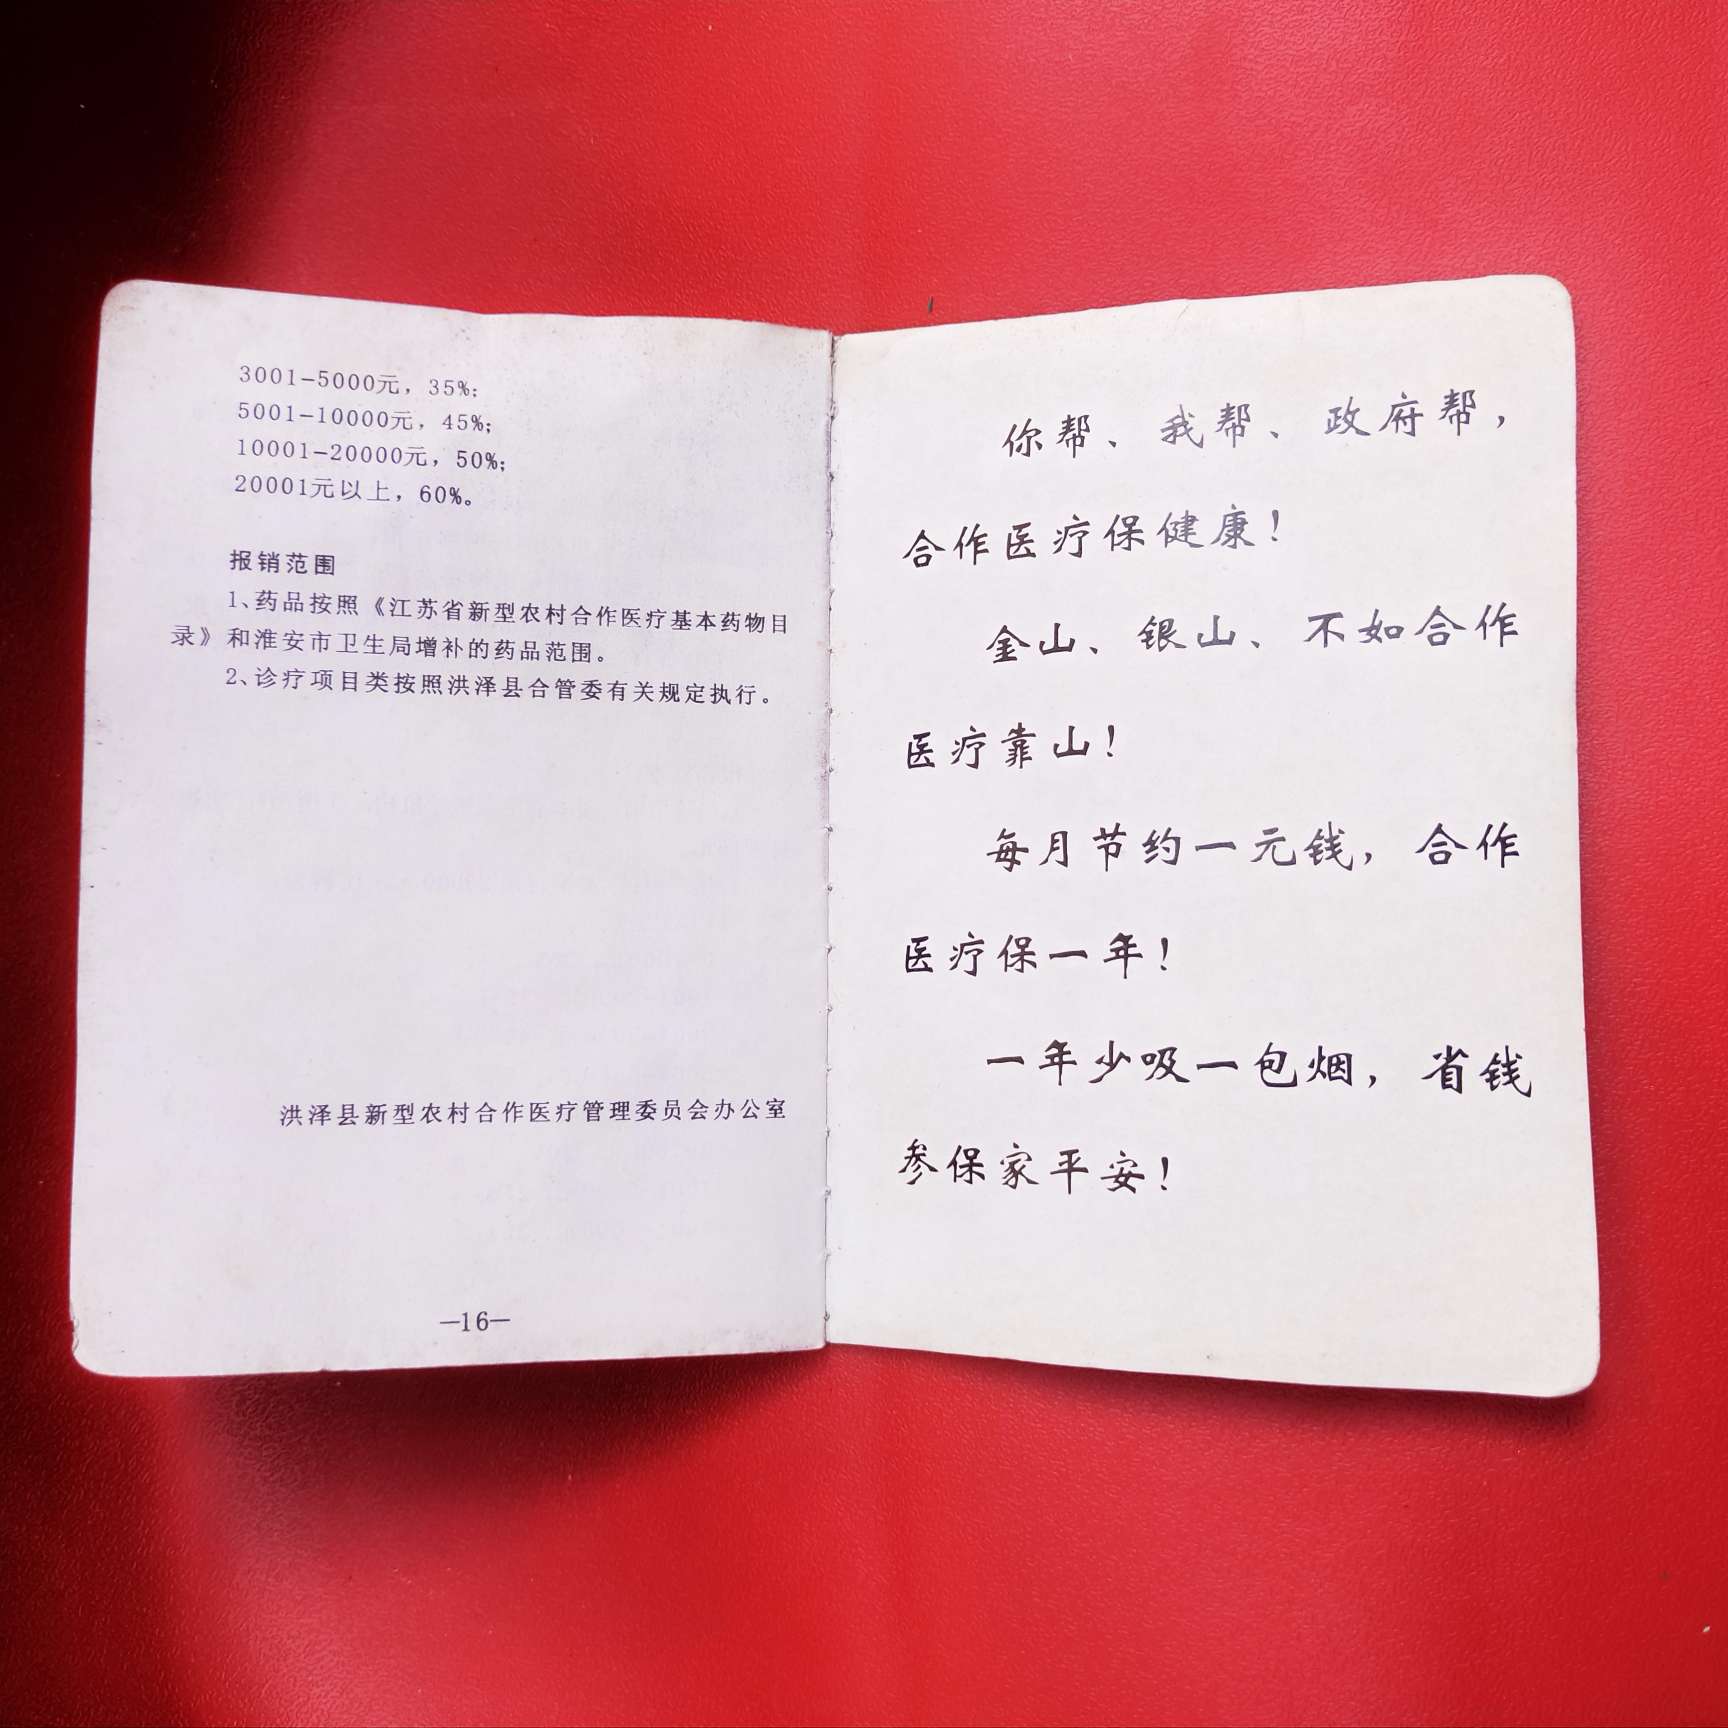 3001-5000元，35%；
5001-10000元，45%；
10001-20000元，50%；
20001元以上，60%。
报销范围
1、药品按照《江苏省新型农村合作医疗基本药物目
录》和淮安市卫生局增补的药品范围。
2、诊疗项目类按照洪泽县合管委有关规定执行。
洪泽县新型农村合作医疗管理委员会办公室
—16—
你帮、我帮、政府帮，
合作医疗保健康！
金山、银山、不如合作
医疗靠山！
每月节约一元钱，合作
医疗保一年！
一年少吸一包烟，省钱
参保家平安！